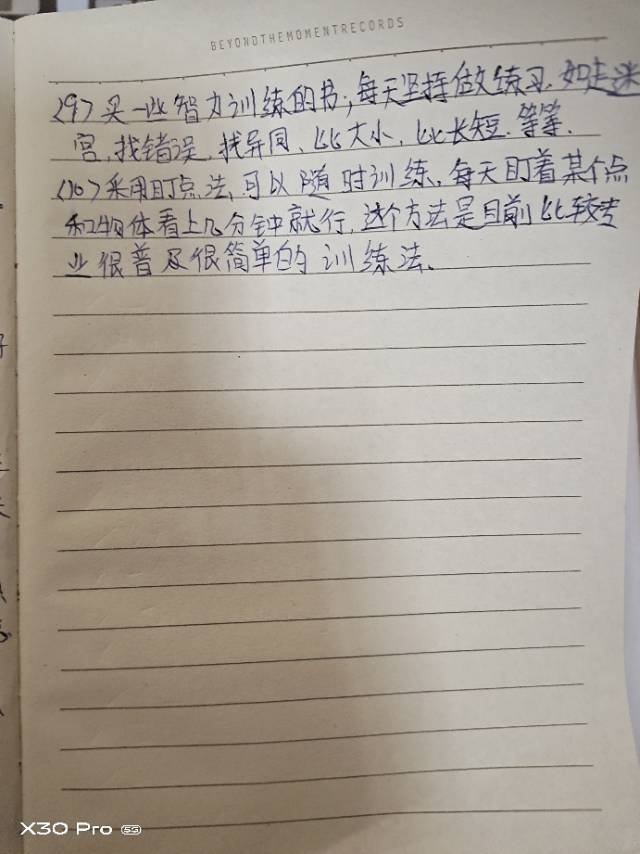 BEYONDTHEMOMENTRECORDS
<9>买一些智力训练的书,每天坚持做练习.如走迷
宫,找错误,找异同、比大小,比长短.等等.
<10>采用盯点法,可以随时训练,每天盯着某个点
和物体看上几分钟就行,这个方法是目前比较专
业很普及很简单的训练法.
X30 Pro 5G